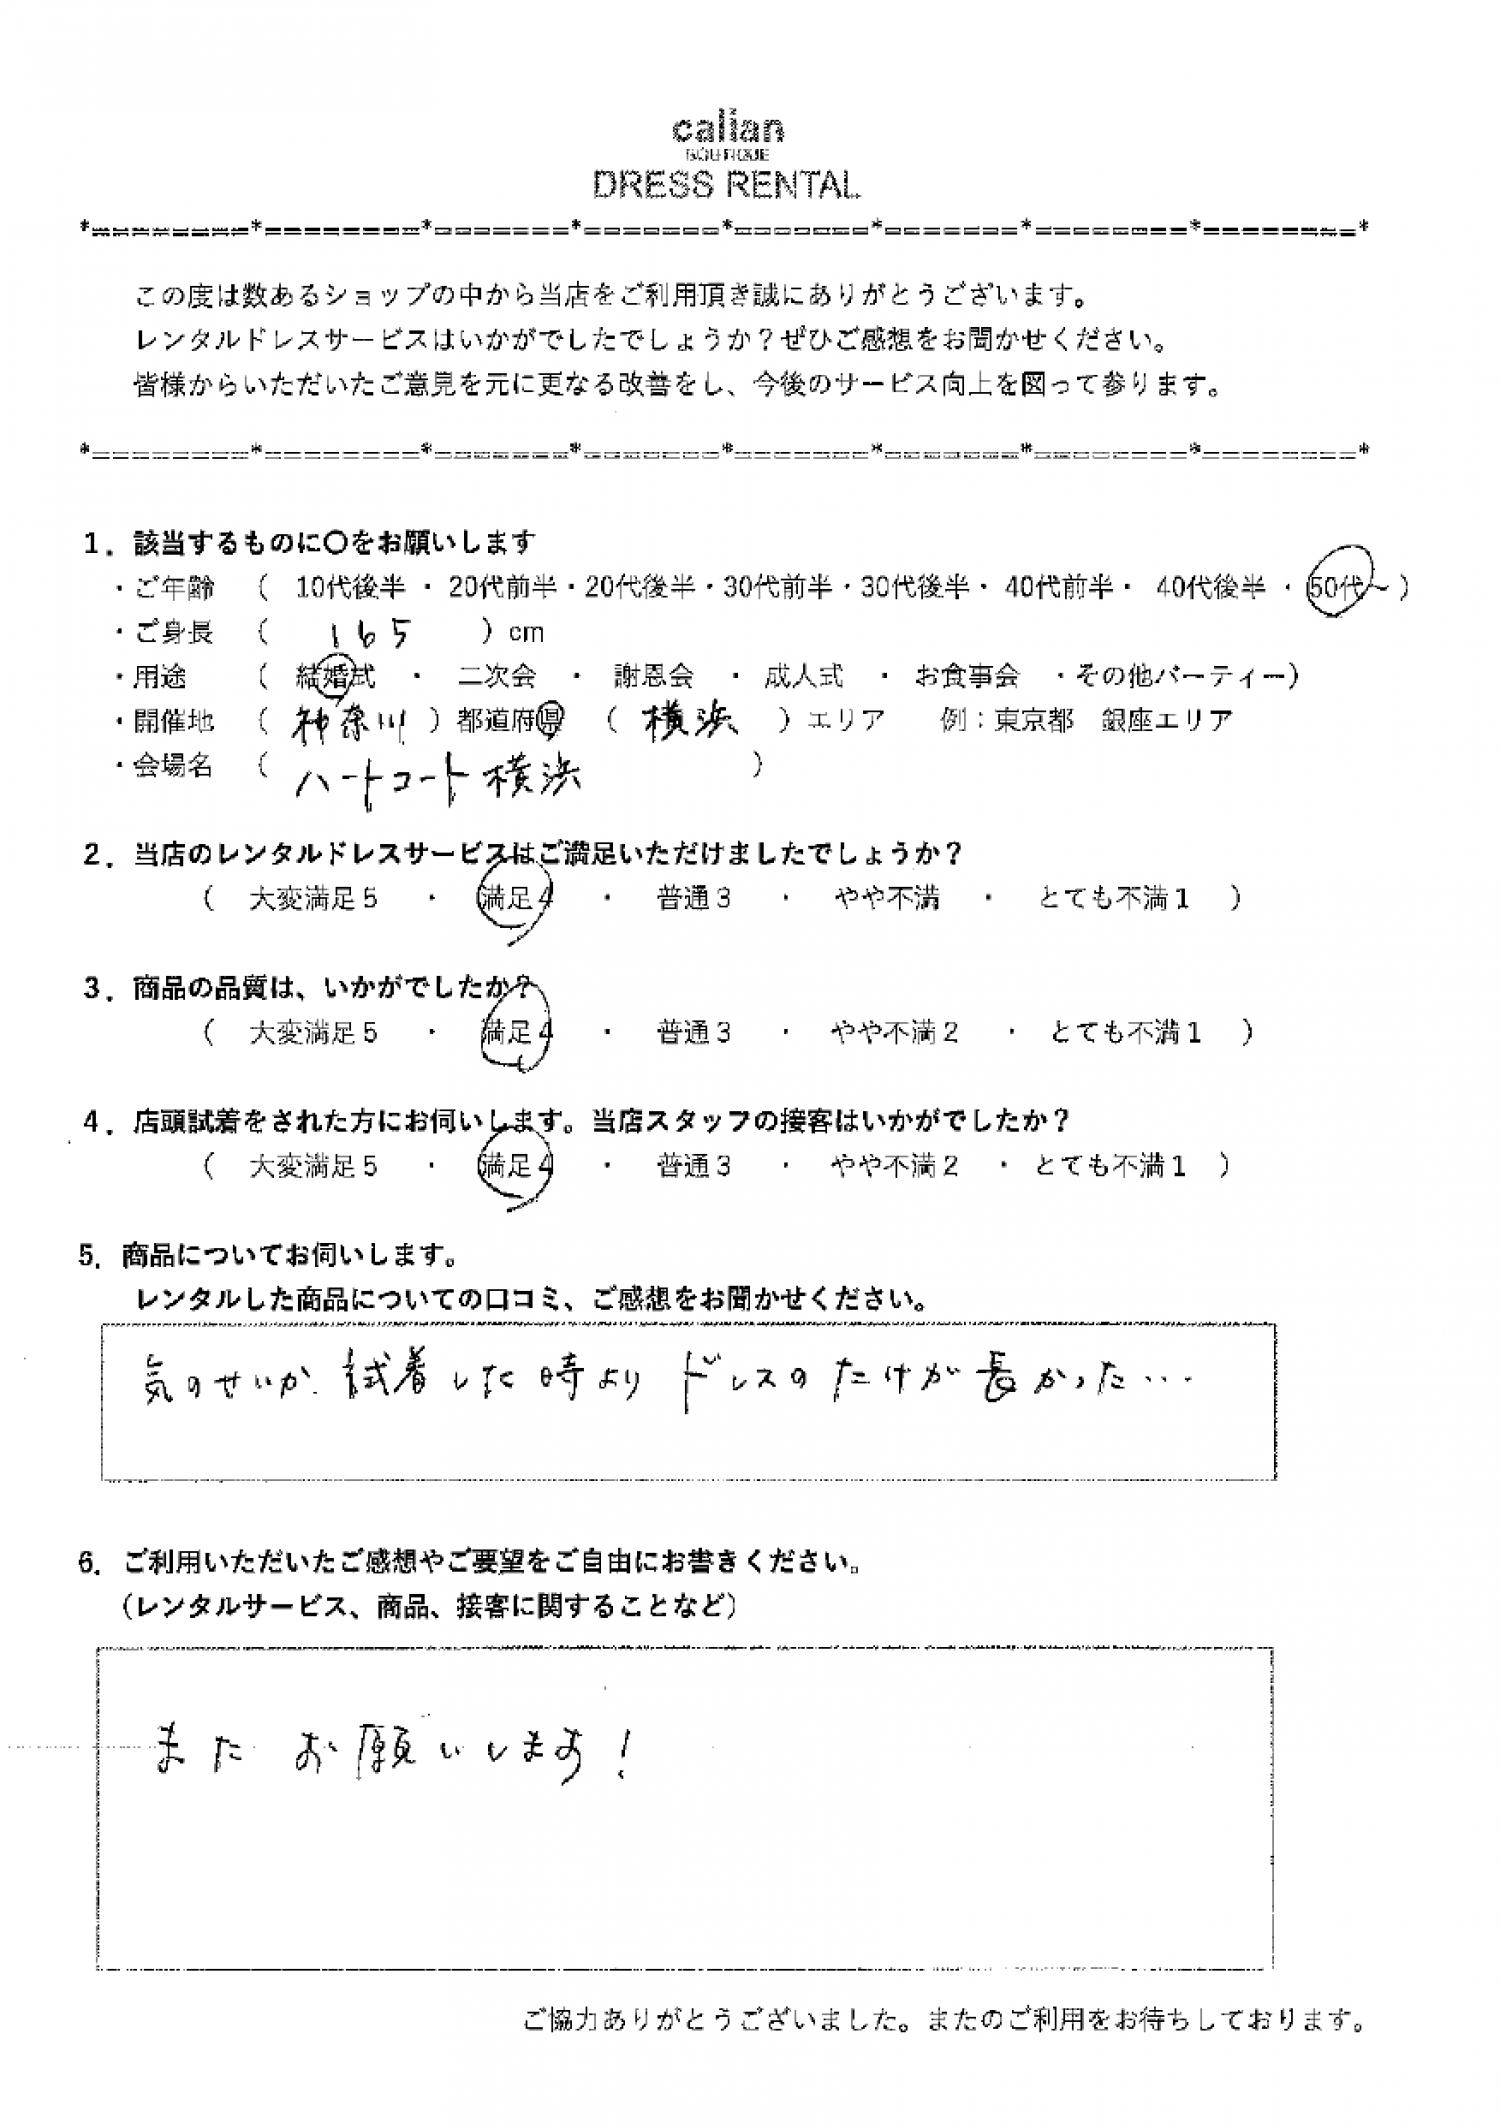 calian
BOUTIQUE
DRESS RENTAL
*========*========*=======*=======*=======*=======*========*========*
この度は数あるショップの中から当店をご利用頂き誠にありがとうございます。
レンタルドレスサービスはいかがでしたでしょうか？ぜひご感想をお聞かせください。
皆様からいただいたご意見を元に更なる改善をし、今後のサービス向上を図って参ります。
*========*========*=======*=======*=======*=======*========*========*
1．該当するものに〇をお願いします
・ご年齢　（　10代後半 ・ 20代前半・20代後半・30代前半・30代後半・ 40代前半・ 40代後半 ・ 50代～ ）
・ご身長　（　165　）cm
・用途　（　結婚式　・　二次会　・　謝恩会　・　成人式　・　お食事会　・その他パーティー）
・開催地　（　神奈川　）都道府県　（　横浜　）エリア　例：東京都　銀座エリア
・会場名　（　ハートコート横浜　）
2．当店のレンタルドレスサービスはご満足いただけましたでしょうか？
（　大変満足５　・　満足４　・　普通３　・　やや不満　・　とても不満１　）
3．商品の品質は、いかがでしたか？
（　大変満足５　・　満足４　・　普通３　・　やや不満２　・　とても不満１　）
4．店頭試着をされた方にお伺いします。当店スタッフの接客はいかがでしたか？
（　大変満足５　・　満足４　・　普通３　・　やや不満２　・とても不満１　）
5．商品についてお伺いします。
レンタルした商品についての口コミ、ご感想をお聞かせください。
気のせいか、試着した時より ドレスの たけが 長かった…
6．ご利用いただいたご感想やご要望をご自由にお書きください。
（レンタルサービス、商品、接客に関することなど）
また お願いします！
ご協力ありがとうございました。またのご利用をお待ちしております。